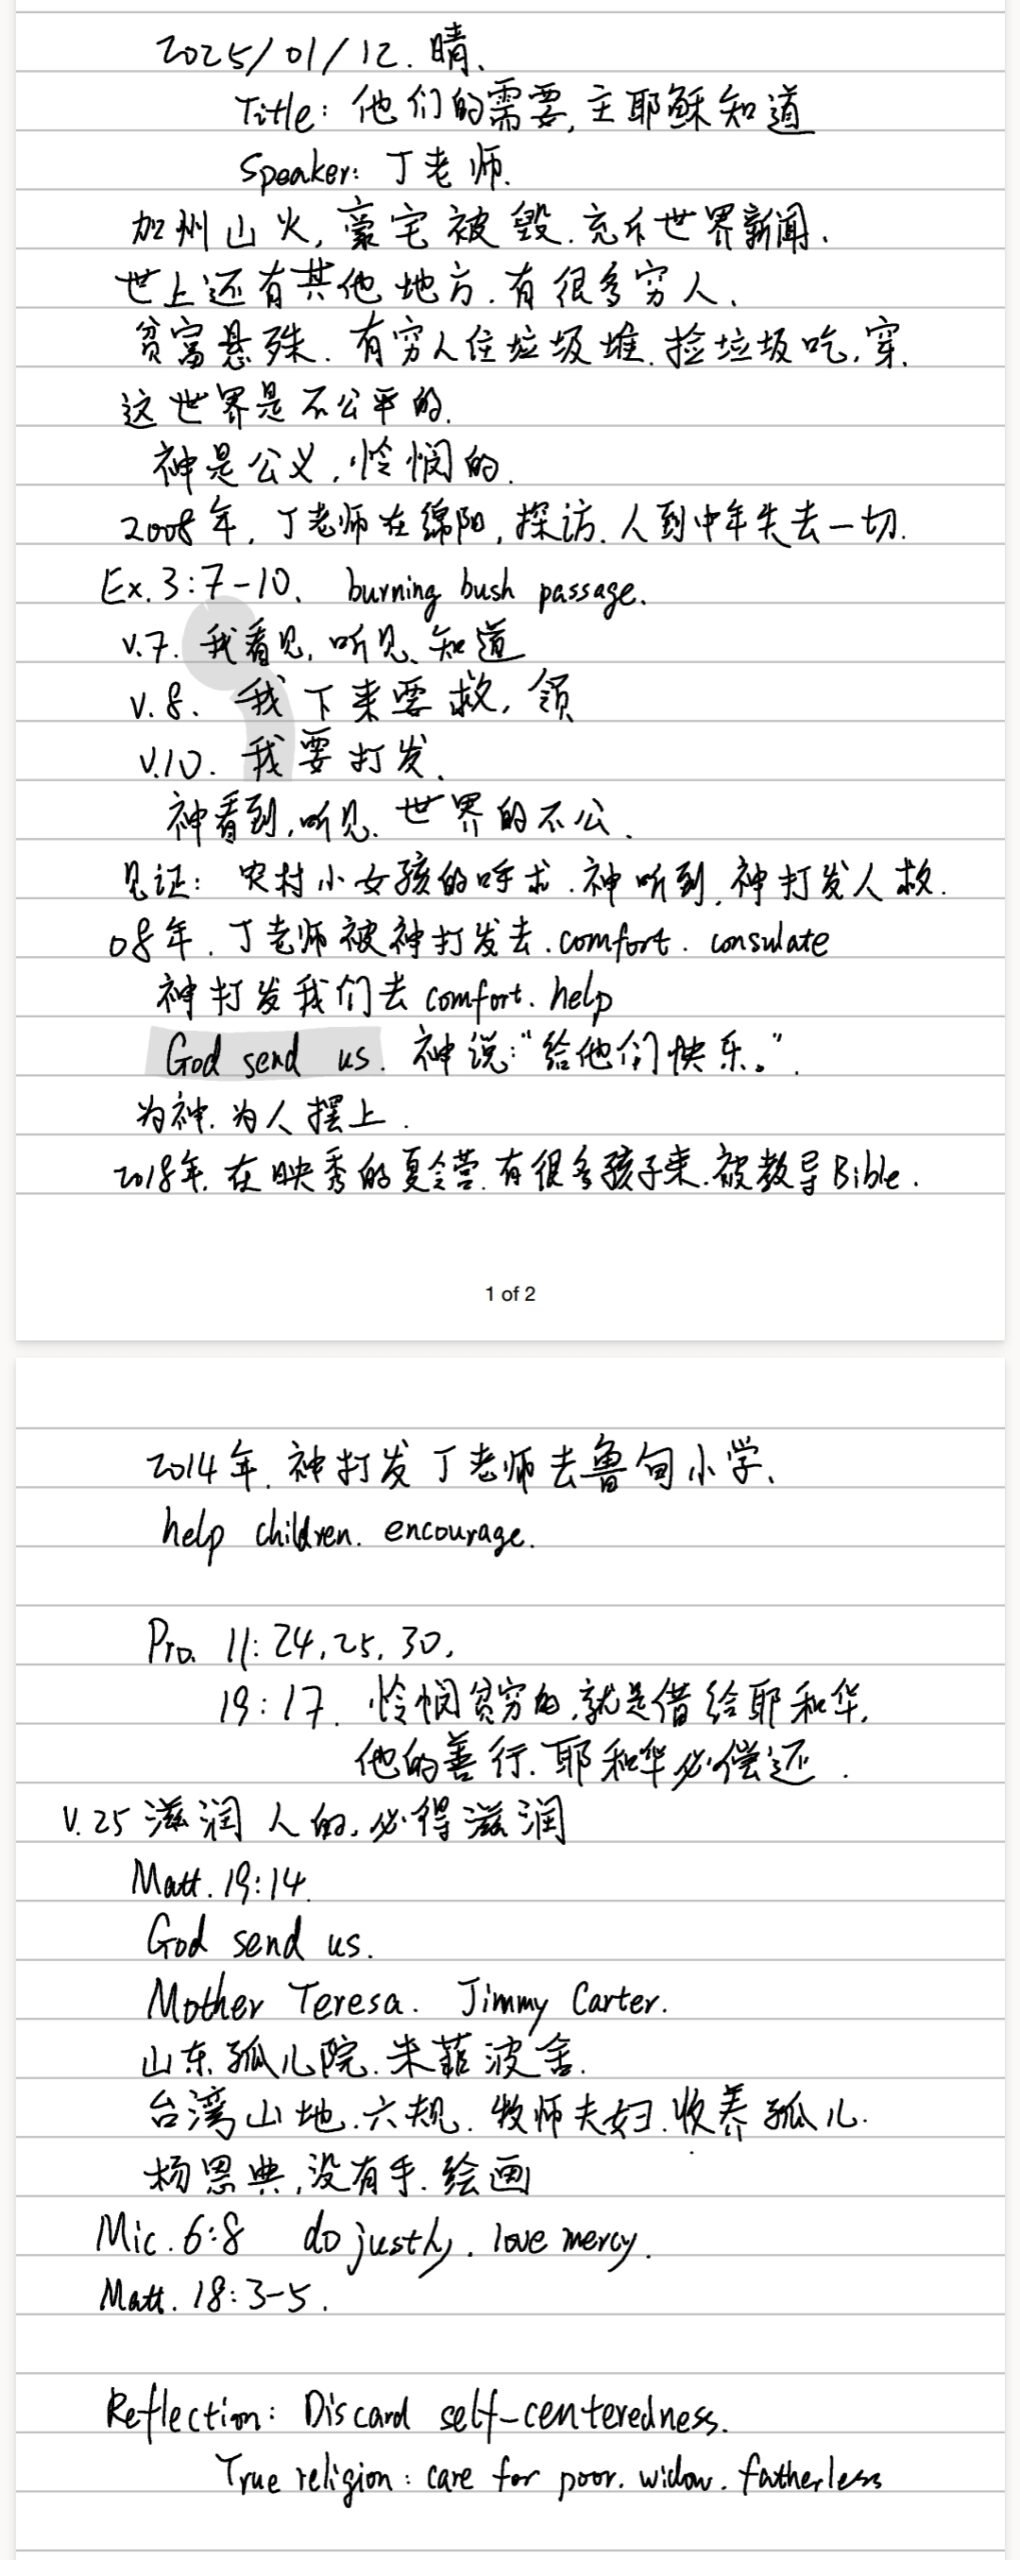 2025/01/12. 晴.
Title: 他们的需要,主耶稣知道
Speaker: 丁老师.
加州山火,豪宅被毁.充斥世界新闻.
世上还有其他地方.有很多穷人.
贫富悬殊.有穷人住垃圾堆.捡垃圾吃,穿.
这世界是不公平的.
神是公义,怜悯的.
2008年,丁老师在绵阳,探访.人到中年失去一切.
Ex. 3:7-10. burning bush passage.
v.7. 我看见,听见、知道
v.8. 我下来要救,领
v.10. 我要打发.
神看到,听见.世界的不公.
见证: 农村小女孩的呼求.神听到.神打发人救.
08年.丁老师被神打发去.comfort. consulate
神打发我们去 comfort. help
God send us. 神说:“给他们快乐。”.
为神.为人摆上.
2018年.在映秀的夏令营.有很多孩子来.被教导Bible.
1 of 2
2014年.神打发丁老师去鲁甸小学.
help children. encourage.
Pro. 11:24,25,30,
19:17. 怜悯贫穷的,就是借给耶和华,
他的善行.耶和华必偿还.
v.25 滋润人的,必得滋润
Matt. 19:14.
God send us.
Mother Teresa. Jimmy Carter.
山东孤儿院.朱菇波舍.
台湾山地.六规.牧师夫妇.收养孤儿.
杨恩典,没有手.绘画
Mic. 6:8 do justly. love mercy.
Matt. 18:3-5.
Reflection: Discard self-centeredness.
True religion: care for poor. widow. fatherless